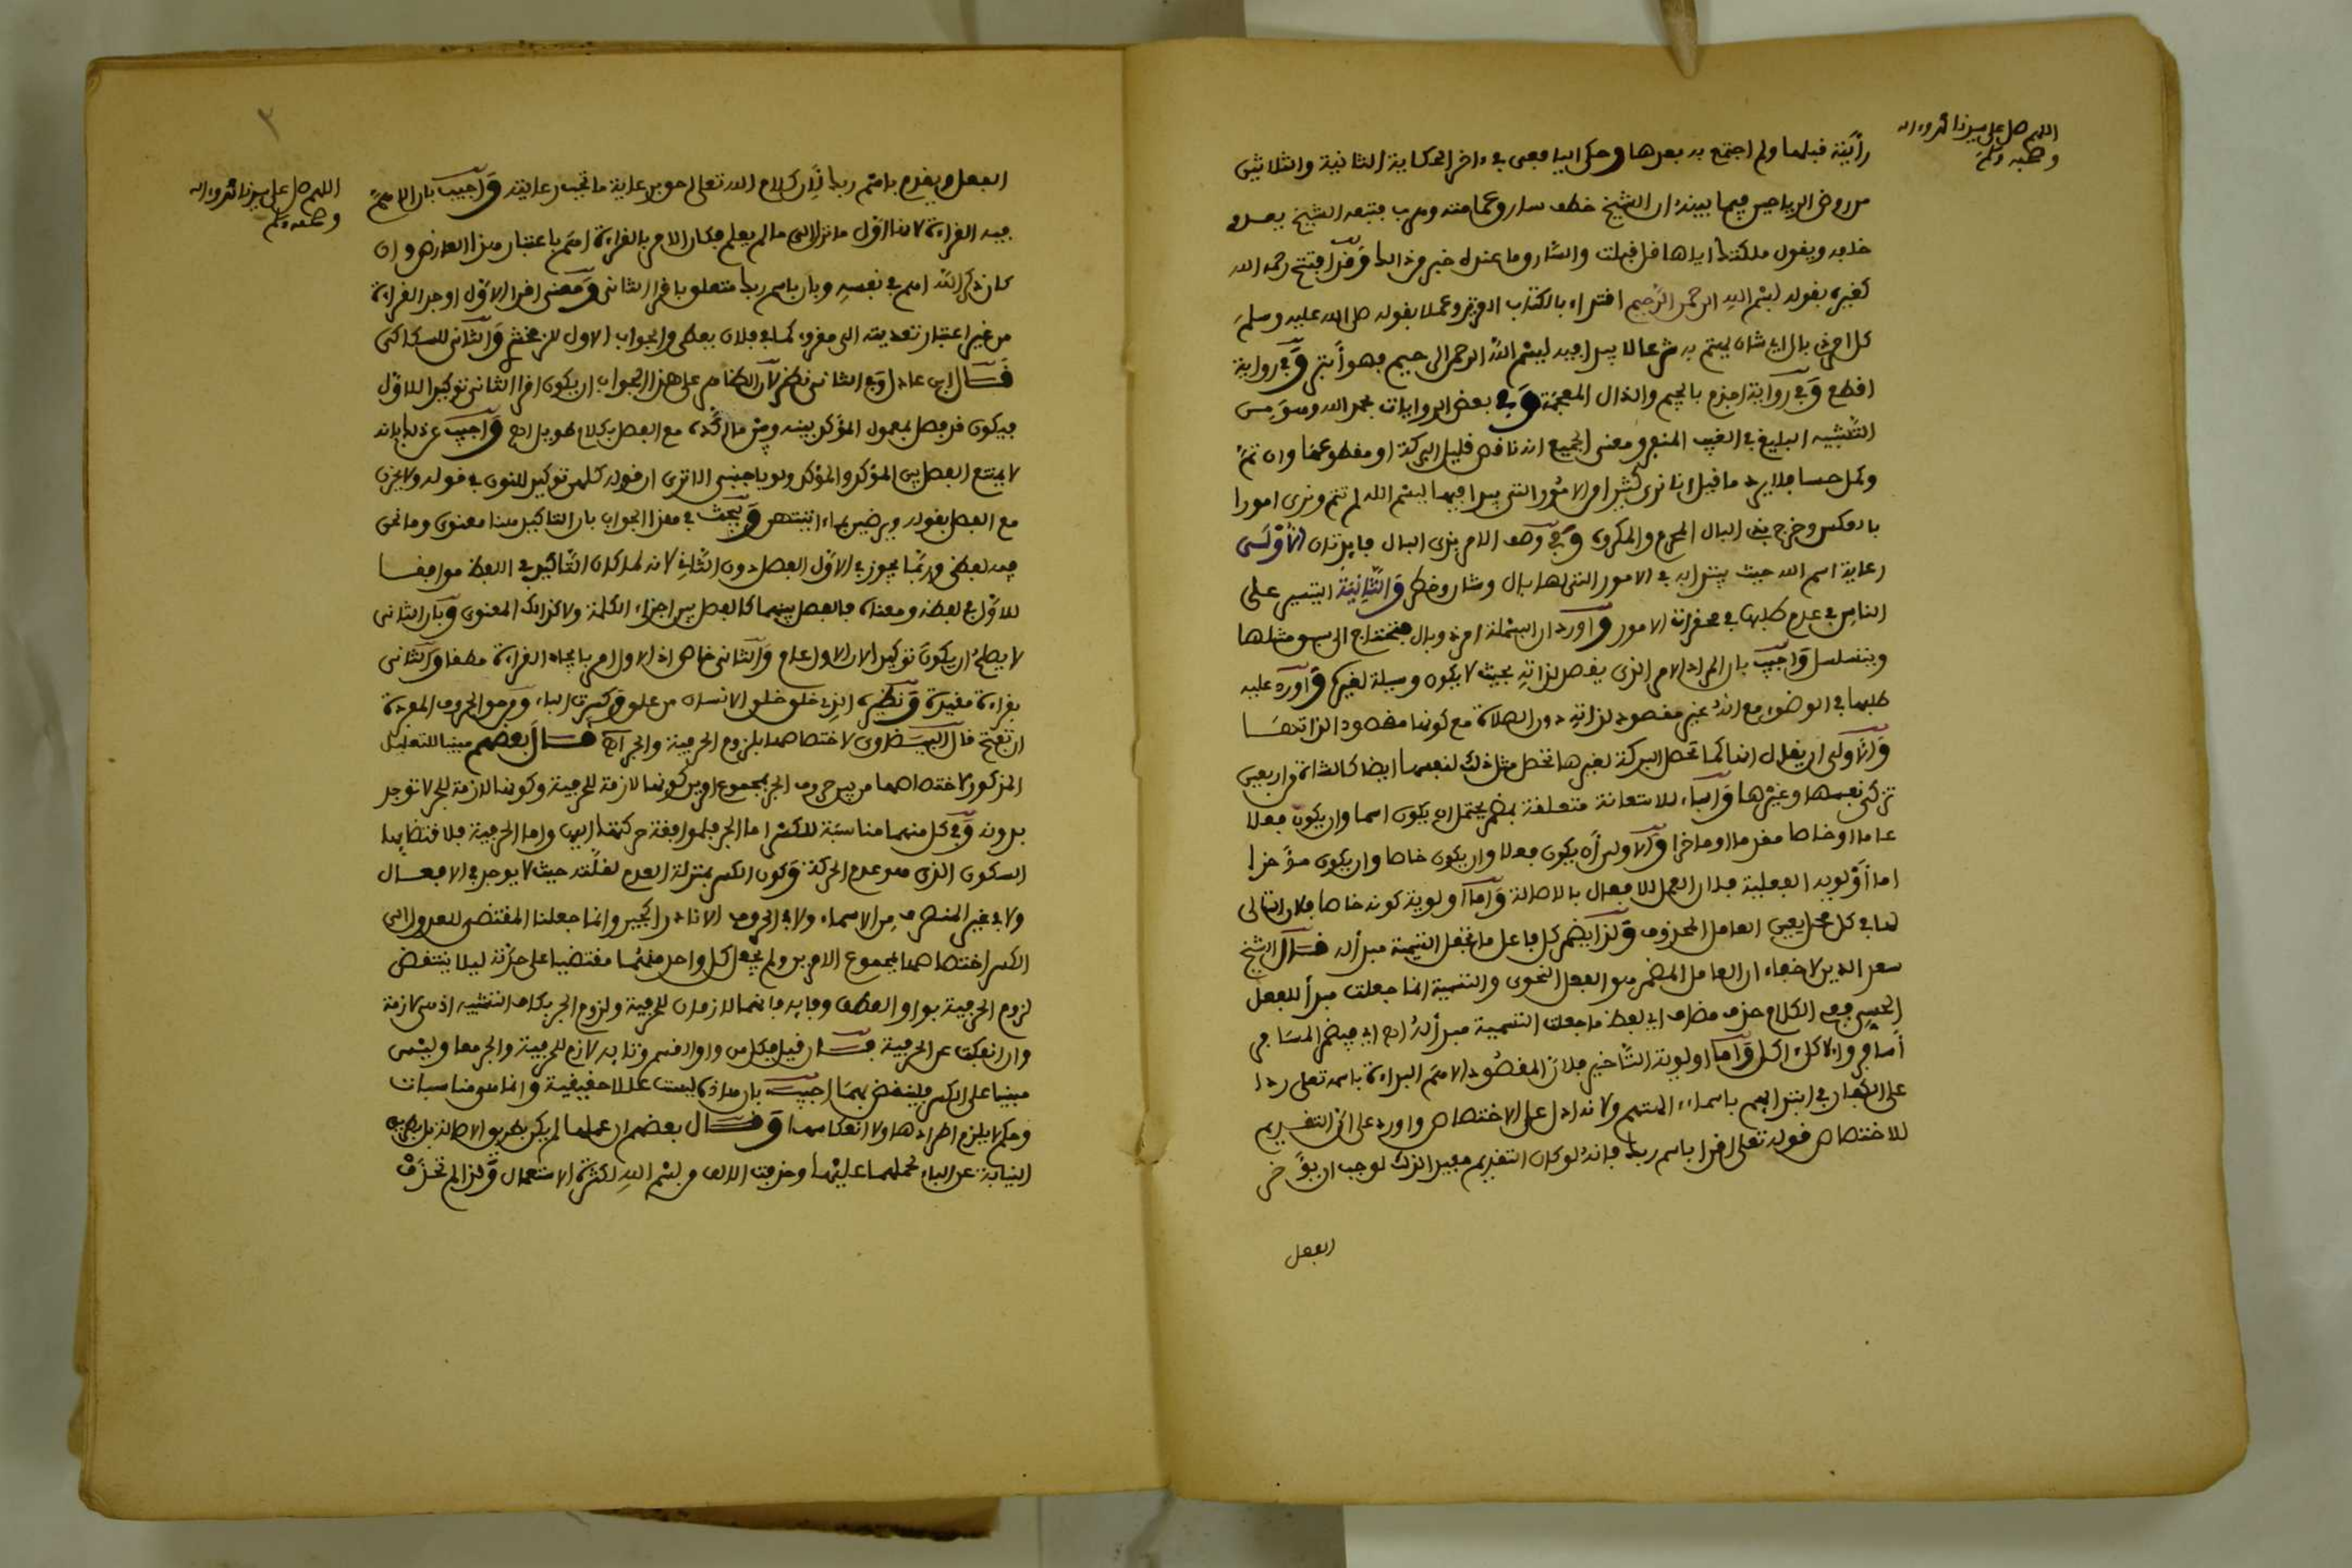 اللهم صل على سيدنا محمد وءاله
وصحبه وسلم
رأيته قبلها ولم اجتمع به بعدها وحكى اليافعي في ءاخر الحكاية الثانية والثلاثين
من روض الرياحين فيما بينه ان الشيخ خطف سار وعمامته وهرب فتبعه الشيخ يعدو
خلفه ويقول ملكتك اياها قل قبلت والشار وما عنده خبر من ذلك وقد افتتح رحمه الله
كغيره بقوله بسم الله الرحمن الرحيم اقتداء بالكتاب العزيز وعملا بقوله صلى الله عليه وسلم
كل امر ذي بال اي شان يهتم به شرعا لا يبدا فيه ببسم الله الرحمن الرحيم فهو أبتر وفي رواية
اقطع وفي رواية اجذم بالجيم والذال المعجمة وفي بعض الروايات بحمد الله وهو من
التشبيه البليغ في العيب المنفر ومعنى الجميع انه ناقص قليل البركة او مقطوعها وان تم
وكمل حسا فلا يرد ما قيل انا نرى كثيرا من الامور التي يبدا فيها ببسم الله لم تتم ونرى امورا
بالعكس وخرج بذي البال المحرم والمكروه وفي وصف الامر بذي البال فايدتان الأولى
رعاية اسم الله حيث يبتدا به في الامور التي لها بال وشان وخطر والثانية التيسير على
الناس في عدم طلبها في محقرات الامور وأورد ان البسملة امر ذو بال فتحتاج الى سبق مثلها
ويتسلسل وأجيب بان المراد الامر الذي يقصد لذاته بحيث لا يكون وسيلة لغيره وأورد عليه
طلبها في الوضوء مع انه غير مقصود لذاته دون الصلاة مع كونها مقصودا لذاتها
والأولى ان يقال انها كما تحصل البركة لغيرها تحصل مثل ذلك لنفسها ايضا كالشاة من اربعين
تزكي نفسها وغيرها والباء للاستعانة متعلقة بمضمر يحتمل ان يكون اسما وان يكون فعلا
عاما او خاصا مقدما او ماخرا والأولى أن يكون فعلا وان يكون خاصا وان يكون مؤخرا
اما أولوية الفعلية فلان العمل للافعال بالاصالة وأما أولوية كونه خاصا فلان التالي
لها في كل محل يعين العامل المحذوف وكذا يضمر كل فاعل ما تجعل التسمية مبدأ له قال الشيخ
سعد الدين لا خفاء ان العامل المضمر هو الفعل النحوي والتسمية انما جعلت مبدأ للفعل
الحسي ففي الكلام حذف مضاف اي لفظ ما جعلت التسمية مبدأ له اي فيضمر المسافر
أسافر والاكل ءاكل وأما اولوية التأخير فلان المقصود الاهم البداءة باسمه تعلى ردا
على الكفار في ابتدايهم باسماء الهتهم ولانه ادل على الاختصاص واورد على ان التقديم
للاختصاص قوله تعلى اقرا باسم ربك فانه لو كان التقديم مفيدا لذلك لوجب ان يؤخر
الفعل
٣
اللهم صل على سيدنا محمد وءاله
وصحبه وسلم
الفعل ويقدم باسم ربك لان كلام الله تعالى احق برعاية ما تجب رعايته وأجيب بان الاهم
فيه القراءة لانها اول ما نزل الى ما لم يعلم فكان الامر بالقراءة اهم باعتبار هذا العارض وان
كان ذكر الله اهم في نفسه وبان باسم ربك متعلق باقرا الثاني ومعنى اقرا الاول اوجد القراءة
من غير اعتبار تعديته الى مقروء كما في فلان يعطي والجواب الاول للزمخشري والثاني للسكاكي
قال ابن عادل وفي الثاني نظر لان الظاهر على هذا الجواب ان يكون اقرا الثاني توكيدا للاول
فيكون قد فصل بمعمول المؤكد بينه وبين ما اكده مع الفصل بكلام طويل اه وأجيب عن ذلك بانه
لا يمتنع الفصل بين المؤكد والمؤكد ولو باجنبي الا ترى ان قوله كلهن توكيد للنون في قوله ولا يحزن
مع الفصل بقوله ويرضين بما ءاتيتهن وبحث في هذا الجواب بان التاكيد هنا معنوي وما نحن
فيه لفظي وربما يجوز في الاول الفصل دون الثاني لانه لما كان التاكيد في اللفظ موافقا
للاول في لفظه ومعناه فالفصل بينهما كالفصل بين اجزاء الكلمة ولا كذلك المعنوي وبان الثاني
لا يصلح ان يكون توكيدا لان الاول عام والثاني خاص اذ الاول امر بايجاد القراءة مطلقا والثاني
بقراءة مقيدة ونظيره الذي خلق خلق الانسان من علق وكسرت الباء ومن حق الحروف المفردة
ان تفتح قال البيضاوي لاختصاصها بلزوم الحرفية والجر اه قال بعضهم مبينا للتعليل
المذكور لاختصاصها من بين حروف الجر بمجموع امرين كونها لازمة للحرفية وكونها لازمة للجر لا توجد
بدونه وفي كل منهما مناسبة للكسر اما الجر فلموافقة حركتها اليه واما الحرفية فلاقتضايها
السكون الذي هو عدم الحركة وكون الكسر بمنزلة العدم لقلته حيث لا يوجد في الافعال
ولا في غير المنصرف من الاسماء ولا في الحروف الا نادرا كجير وانما جعلنا المقتضي للعدول الى
الكسر اختصاصها بمجموع الامرين ولم يجعل كل واحد منهما مقتضيا على حدته ليلا ينتقض
لزوم الحرفية بواو العطف وفايه فانهما لازمان للحرفية ولزوم الجر بكاف التشبيه اذ هي لازمة
وان انفكت عن الحرفية فان قيل فكل من واو القسم وتايه لازم للحرفية والجر معا وليس
مبنيا على الكسر فينتقض بهما اجيب بان هذه ليست عللا حقيقية وانما هي مناسبات
وحكم لا يلزم اطرادها ولا انعكاسها وقال بعضهم ان عملهما لم يكن بطريق الاصالة بل بطريق
النيابة عن الباء لحملهما عليها وحذفت الالف من بسم الله لكثرة الاستعمال ولذا لم تحذف